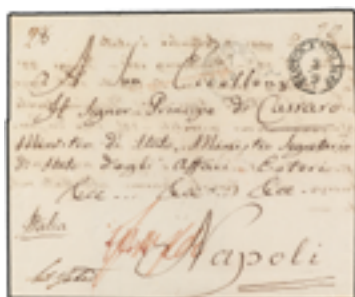 A Sua Eccellenza
Il Signor Principe di Cassaro
Ministro di Stato, Ministro Segretario
di Stato degli Affari Esteri
&ca ... &ca ... &ca
Italia
Napoli